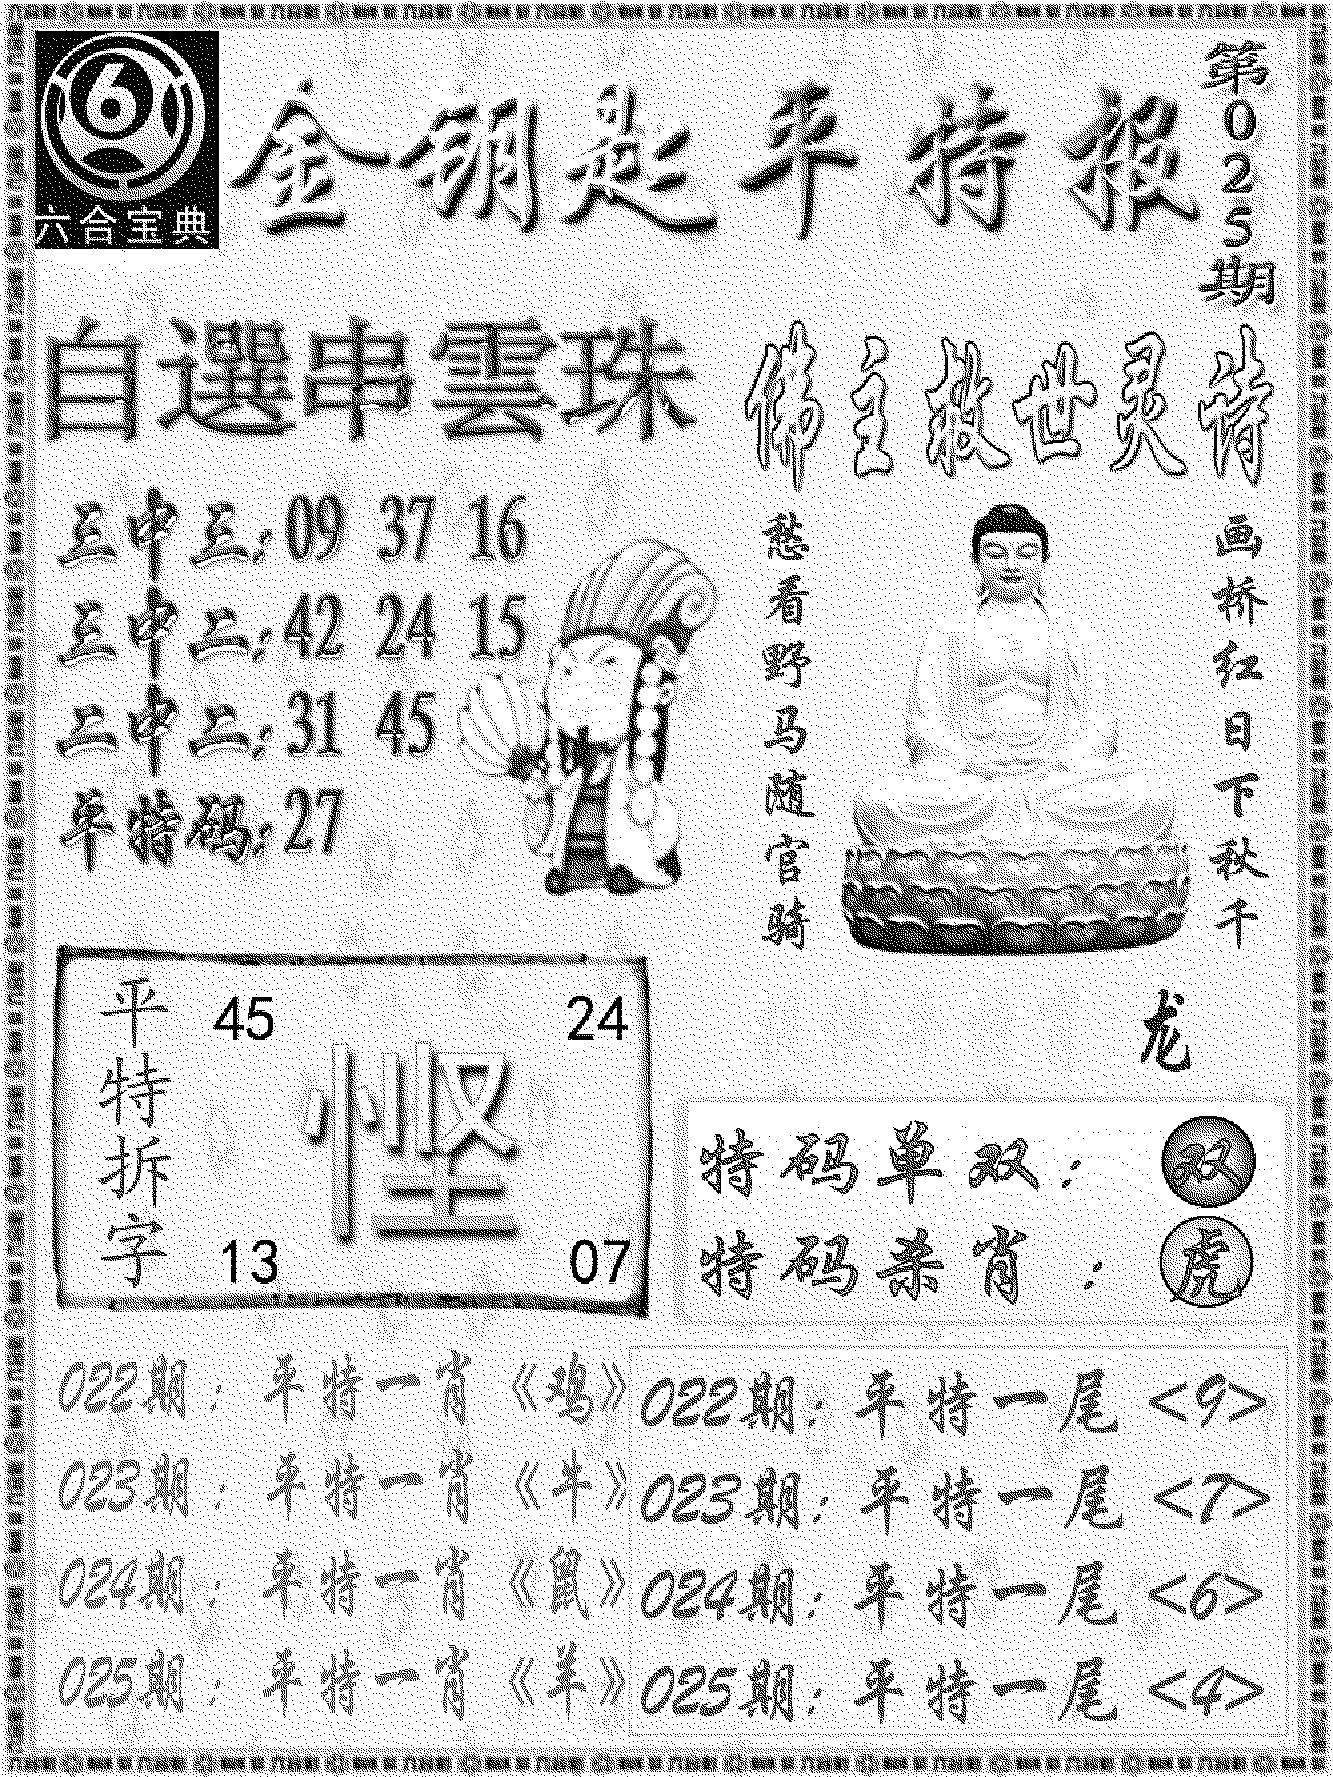 六合宝典
金钥匙平特报
第025期
自選串雲珠
三中三:09 37 16
三中二:42 24 15
二中二:31 45
平特码:27
佛主救世灵诗
画桥红日下秋千
愁看野马随官骑
龙
平特拆字
45 24
悭
13 07
特码单双:双
特码杀肖:虎
022期:平特一肖《鸡》
023期:平特一肖《牛》
024期:平特一肖《鼠》
025期:平特一肖《羊》
022期:平特一尾<9>
023期:平特一尾<7>
024期:平特一尾<6>
025期:平特一尾<4>